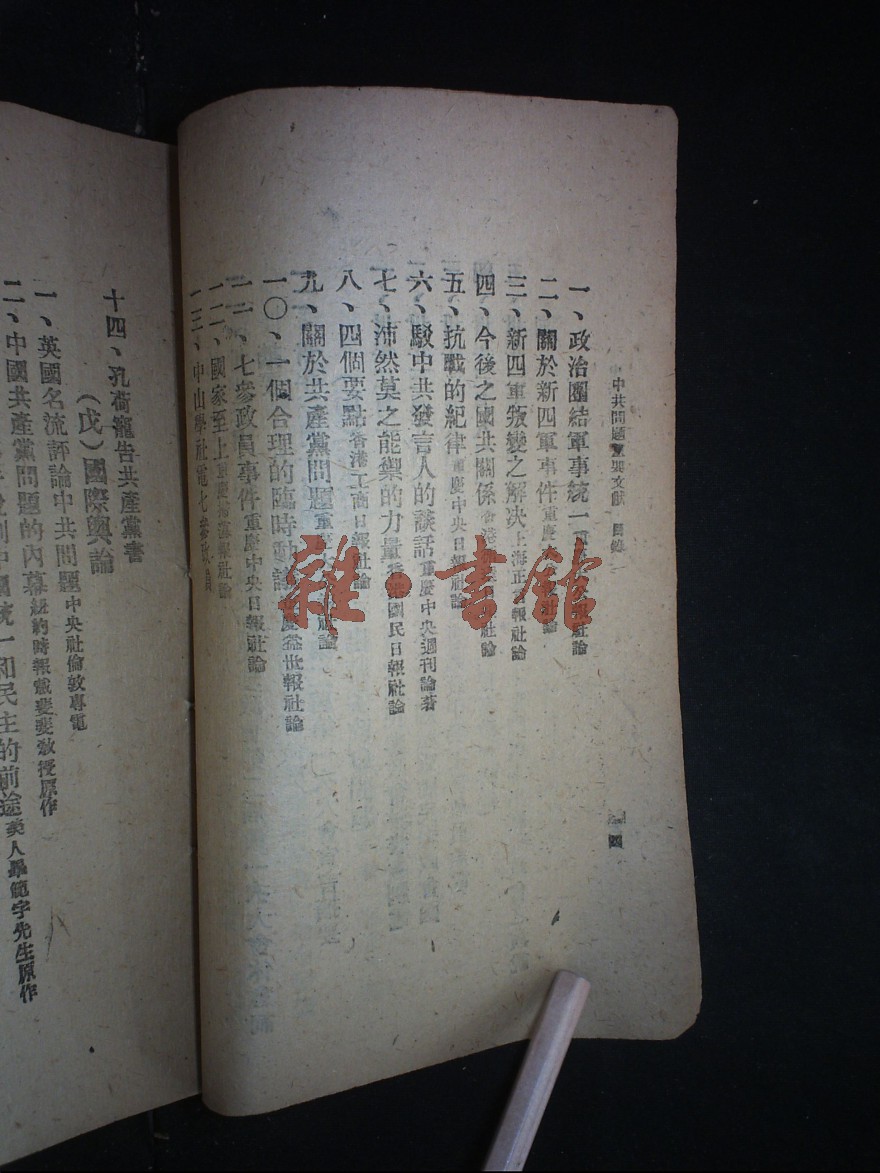 中共問題重要文獻 目錄
四
一、政治團結軍事統一 社論
二、關於新四軍事件 重慶大 報社論
三、新四軍叛變之解決 上海正言報社論
四、今後之國共關係 香港 報社論
五、抗戰的紀律 重慶中央日報社論
六、駁中共發言人的談話 重慶中央週刊論著
七、沛然莫之能禦的力量 香港國民日報社論
八、四個要點 香港工商日報社論
九、關於共產黨問題 重慶 社論
一〇、一個合理的臨時動議 重慶益世報社論
一一、七參政員事件 重慶中央日報社論
一二、國家至上 重慶 報社論
一三、中山學社電七參政員
十四、孔荷寵告共產黨書
(戊)國際輿論
一、英國名流評論中共問題 中央社倫敦專電
二、中國共產黨問題的內幕 紐約時報戴斐斐教授原作
中國統一和民主的前途 美人畢範宇先生原作
雜·書館